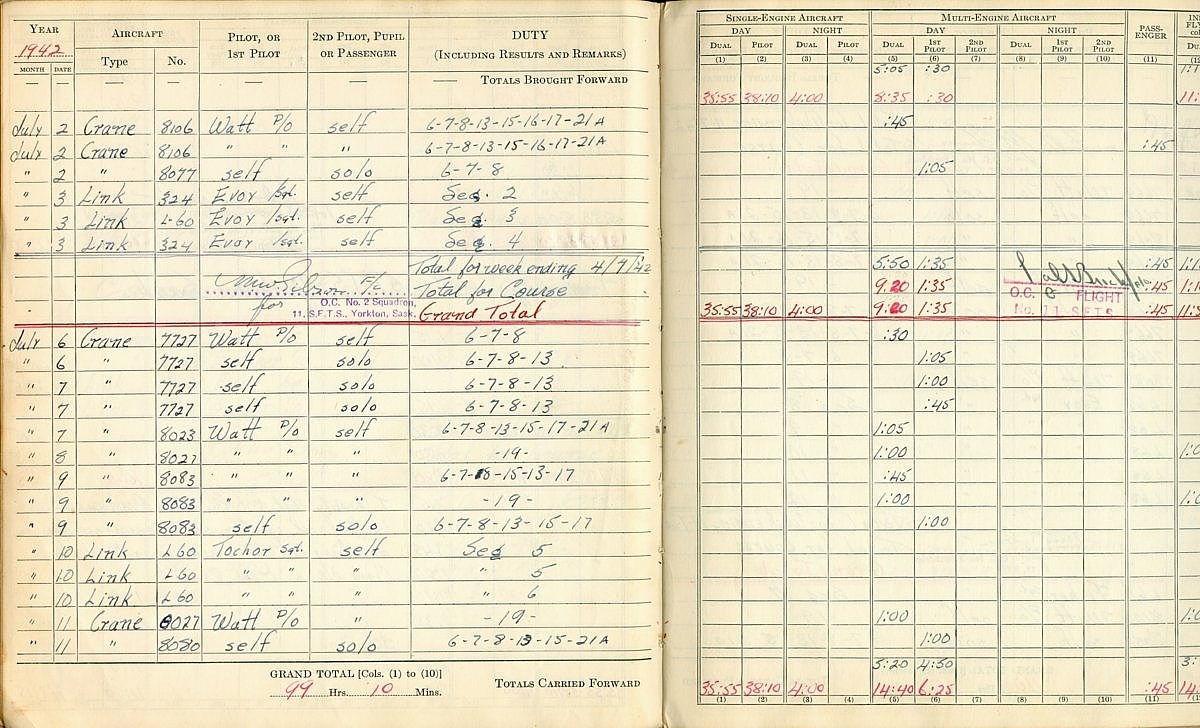 YEAR AIRCRAFT PILOT, OR 1ST PILOT 2ND PILOT, PUPIL OR PASSENGER DUTY (INCLUDING RESULTS AND REMARKS) SINGLE-ENGINE AIRCRAFT MULTI-ENGINE AIRCRAFT PASS-ENGER
1942 DAY NIGHT DAY NIGHT
MONTH DATE Type No. DUAL PILOT DUAL PILOT DUAL 1ST PILOT 2ND PILOT DUAL 1ST PILOT 2ND PILOT
(1) (2) (3) (4) (5) (6) (7) (8) (9) (10) (11)
— — — — — — — TOTALS BROUGHT FORWARD 5:05 :30
35:55 38:10 4:00 8:35 :30
July 2 Crane 8106 Watt P/o self 6-7-8-13-15-16-17-21A :45
July 2 Crane 8106 " " " 6-7-8-13-15-16-17-21A :45
" 2 " 8077 self solo 6-7-8 1:05
" 3 Link 324 Evoy /Sgt. self Seq. 2
" 3 Link L-60 Evoy /Sgt. self Seq. 3
" 3 Link 324 Evoy /Sgt. self Seq. 4
Total for week ending 4/7/42 5:50 1:35 :45
F/L Total for Course 9:20 1:35 :45
for O.C. No. 2 Squadron, O.C. C FLIGHT
11, S.F.T.S., Yorkton, Sask. Grand Total 35:55 38:10 4:00 9:20 1:35 No. 11 S.F.T.S. :45
July 6 Crane 7727 Watt P/o self 6-7-8 :30
" 6 " 7727 self solo 6-7-8-13 1:05
" 7 " 7727 self solo 6-7-8-13 1:00
" 7 " 7727 self solo 6-7-8-13 :45
" 7 " 8023 Watt P/o self 6-7-8-13-15-17-21A 1:05
" 8 " 8027 " " " -19- 1:00
" 9 " 8083 " " " 6-7-8-15-13-17 :45
" 9 " 8083 " " " -19- 1:00
" 9 " 8083 self solo 6-7-8-13-15-17 1:00
" 10 Link L60 Tochor Sgt. self Seq 5
" 10 Link L60 " " " " 5
" 10 Link L60 " " " " 6
" 11 Crane 8027 Watt P/o " -19- 1:00
" 11 " 8080 self solo 6-7-8-13-15-21A 1:00
GRAND TOTAL [Cols. (1) to (10)] 5:20 4:50
99 Hrs. 10 Mins. TOTALS CARRIED FORWARD 35:55 38:10 4:00 14:40 6:25 :45
(1) (2) (3) (4) (5) (6) (7) (8) (9) (10) (11)